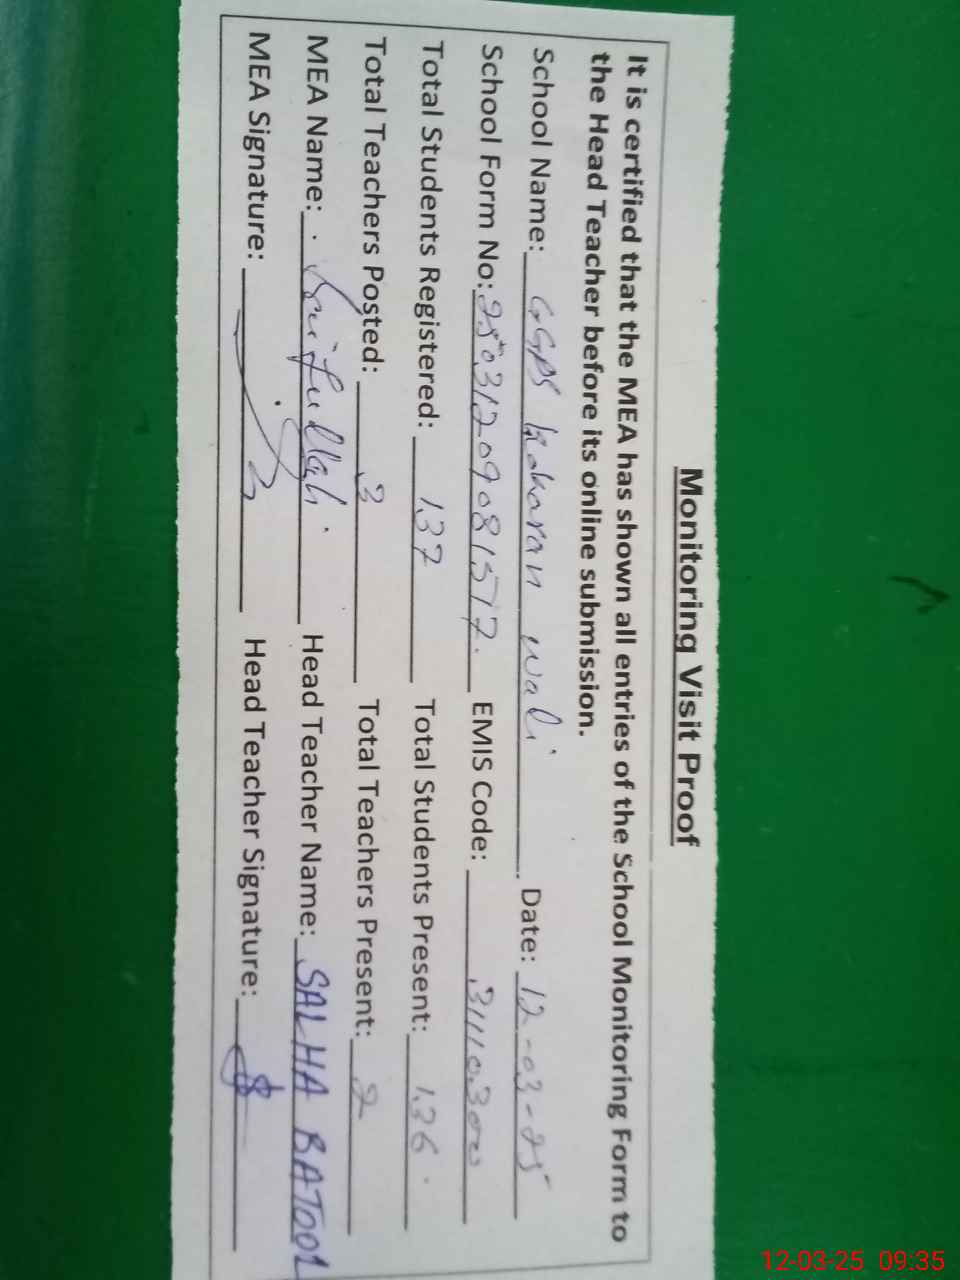 Monitoring Visit Proof
It is certified that the MEA has shown all entries of the School Monitoring Form to
the Head Teacher before its online submission.
School Name: GGPS Kokaran wali Date: 12-03-25
School Form No: 25031209081517. EMIS Code: 31110300
Total Students Registered: 137 Total Students Present: 136.
Total Teachers Posted: 3 Total Teachers Present: 2
MEA Name: Saifullah. Head Teacher Name: SALHA BATOOL
MEA Signature: Head Teacher Signature:
12-03-25 09:35